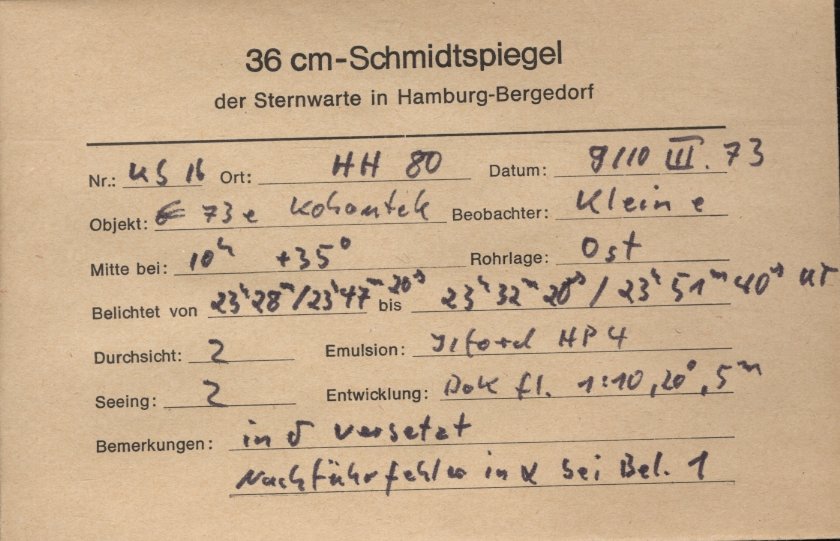 36 cm-Schmidtspiegel
der Sternwarte in Hamburg-Bergedorf
Nr.: KS 16 Ort: HH 80 Datum: 9/10 III. 73
Objekt: 73e Kohoutek Beobachter: Kleine
Mitte bei: 10ʰ +35° Rohrlage: Ost
Belichtet von 23ʰ28ᵐ/23ʰ47ᵐ20ˢ bis 23ʰ32ᵐ20ˢ/23ʰ51ᵐ40ˢ UT
Durchsicht: 2 Emulsion: Ilford HP4
Seeing: 2 Entwicklung: Dok fl. 1:10, 20°, 5ᵐ
Bemerkungen: in δ versetzt
Nachführfehler in α bei Bel. 1